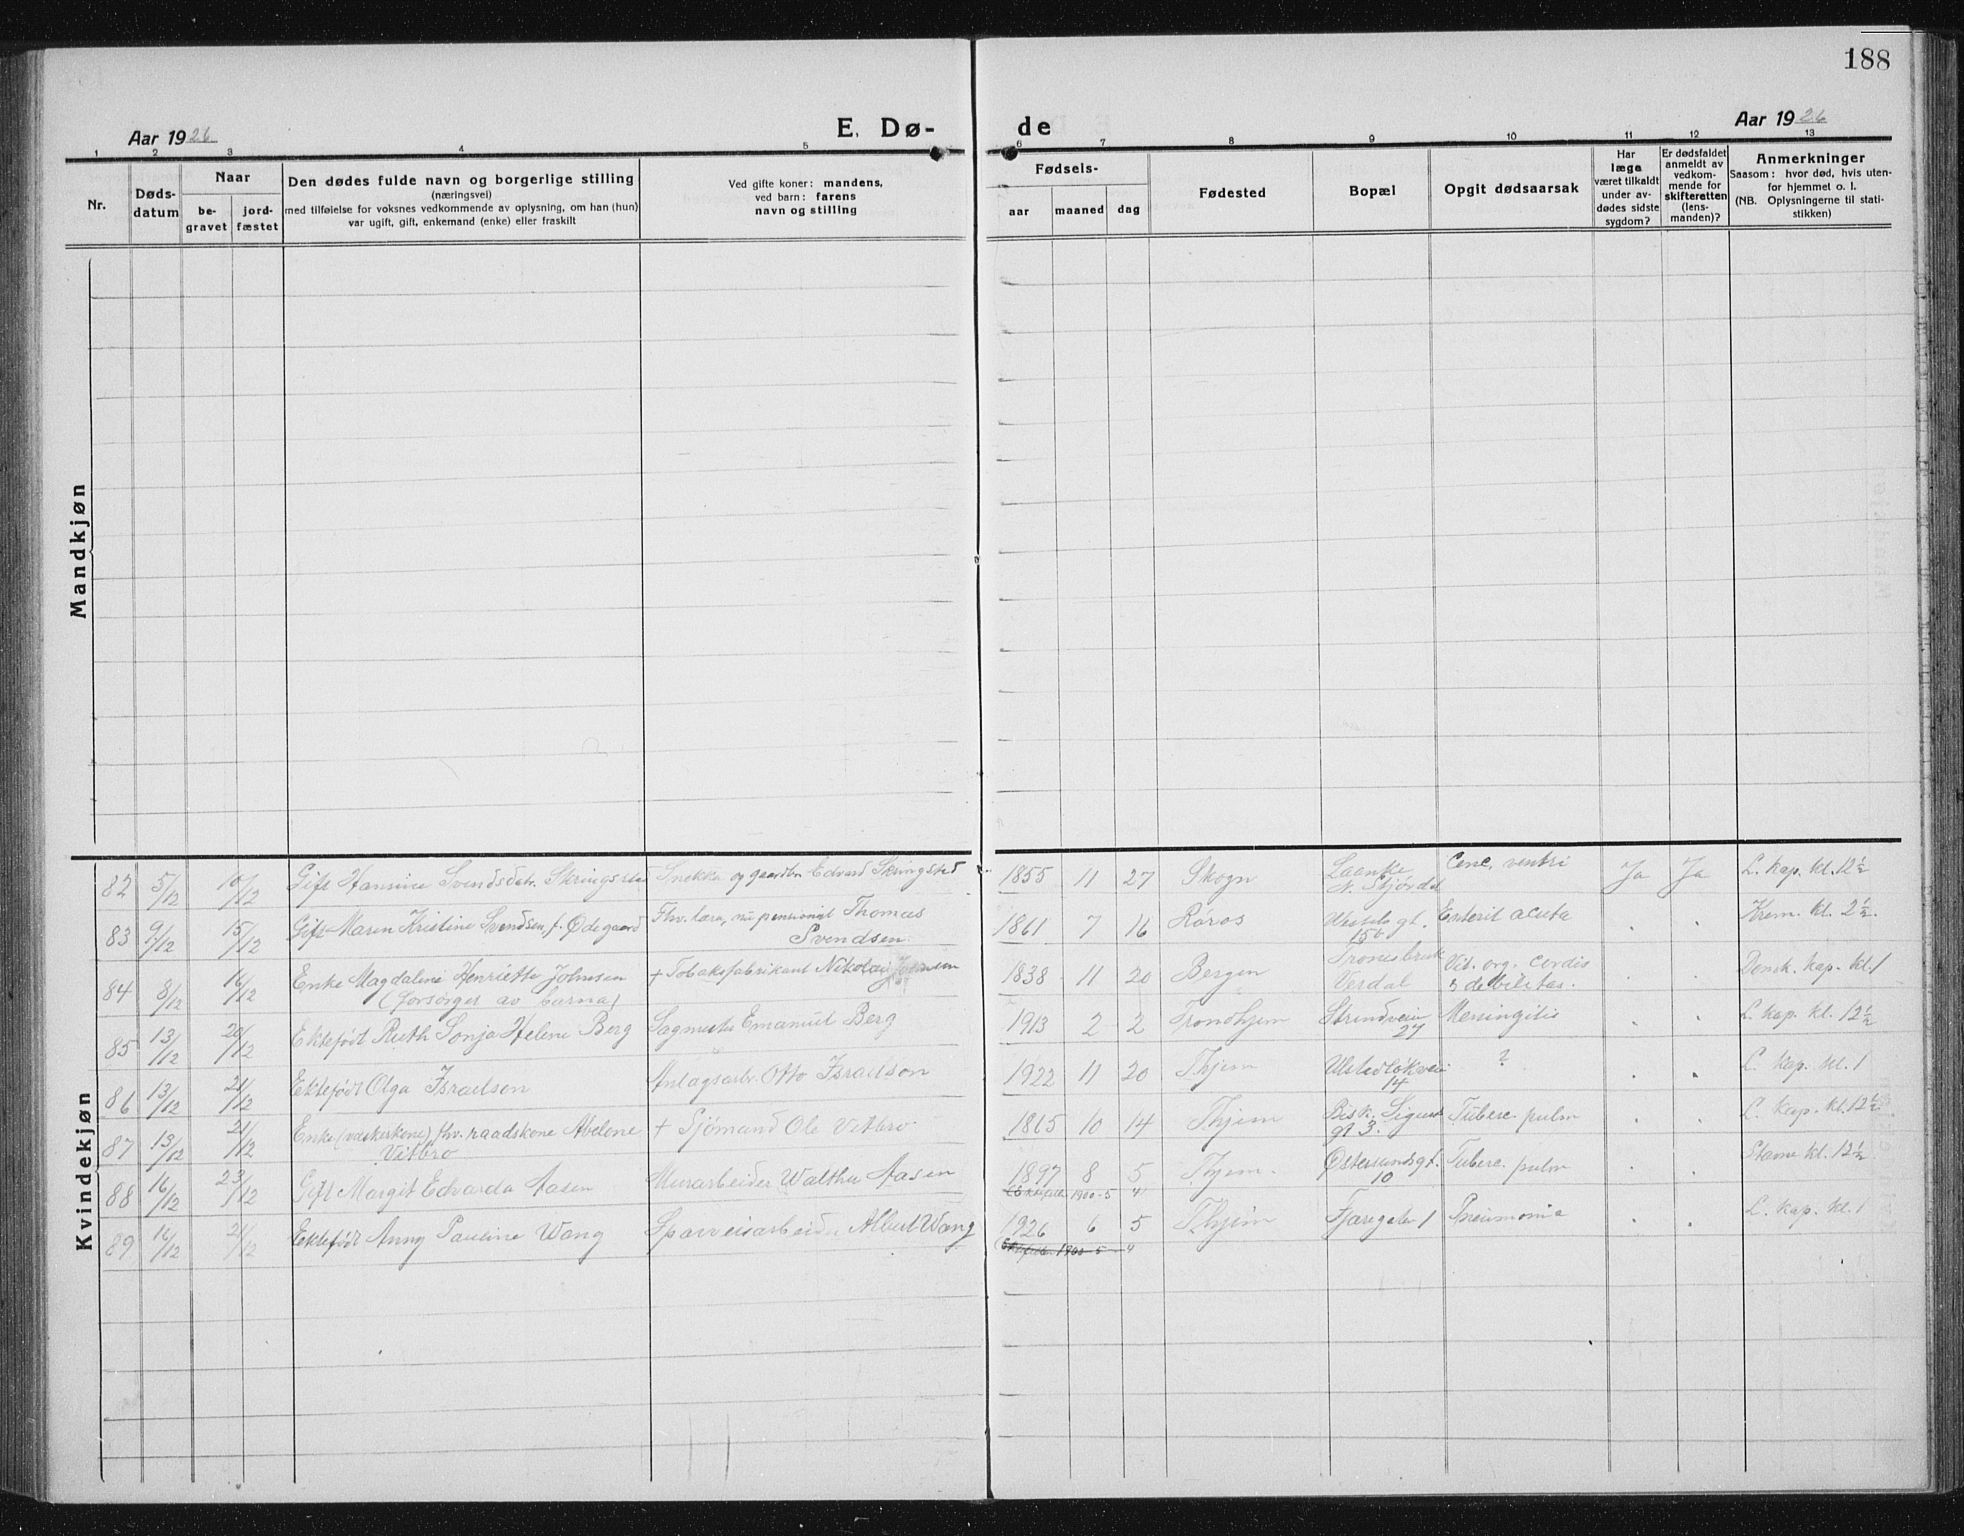 188
Aar 1926
E. Dø-
de
Aar 1926
1 2 3 4 5 6 7 8 9 10 11 12 13
Nr.
Døds-
datum
Naar
be-
gravet
jord-
fæstet
Den dødes fulde navn og borgerlige stilling
(næringsvei)
med tilføielse for voksnes vedkommende av oplysning, om han (hun)
var ugift, gift, enkemand (enke) eller fraskilt
Ved gifte koner: mandens,
ved barn: farens
navn og stilling
Fødsels-
aar maaned dag
Fødested
Bopæl
Opgit dødsaarsak
Har
læge
været tilkaldt
under av-
dødes sidste
sygdom?
Er dødsfaldet
anmeldt av
vedkom-
mende for
skifteretten
(lens-
manden)?
Anmerkninger
Saasom: hvor død, hvis uten-
for hjemmet o. l.
(NB. Oplysningerne til stati-
stikken)
Mandkjøn
Kvindekjøn
82 5/12 10/12 Gift Hansine Svendsdatr. Skringsta Snekker og gaardbr. Edvard Skringstad 1855 11 27 Skogn Laanke N. Stjørdal Canc. ventri Ja Ja L. kap. kl. 12½
83 9/12 15/12 Gift Maren Kristine Svendsen, f. Ødegaard Fhv. lærer, nu pensionist Thomas
Svendsen. 1861 7 16 Röros gt. 15b Enterit acuta Krem. kl. 2½.
84 8/12 16/12 Enke Magdalene Henriette Johnsen
(forsørget av barna) + Tobaksfabrikant Nikolai Johnsen 1838 11 20 Bergen Tronesbruk
Verdal Vit. org. cordis
& debilitas. Domk. kap. kl. 1
85 13/12 20/12 Ektefødt Ruth Sonja Helene Berg Sagmester Emanuel Berg 1913 2 2 Trondhjem Strindveien
27 Meningitis L. kap. kl. 12½
86 13/12 21/12 Ektefødt Olga Israelson Anlægsarb. Otto Israelson 1922 11 20 Thjem
14 ? L. kap. kl. 1
87 13/12 21/12 Enke (vaskerkone) fhv. raadskone Abelone
Vitbro + Sjömand Ole Vitbro 1865 10 14 Thjem Bisk. Sigurds
gt 3. Tuberc. pulm L. kap. kl. 12½
88 16/12 23/12 Gift Margit Edvarda Aasen Murarbeider Walther Aasen 1897 8 5 Thjem. Østersundsgt.
10 Tuberc. pulm Stavne kl. 12½
1900-5 4
89 16/12 21/12 Ektefødt Anny Pauline Wang Sporveisarbeider Albert Wang 1926 6 5 Thjem Fjæregaten 1 Pneumonia L. kap. kl. 1
1900-5-4